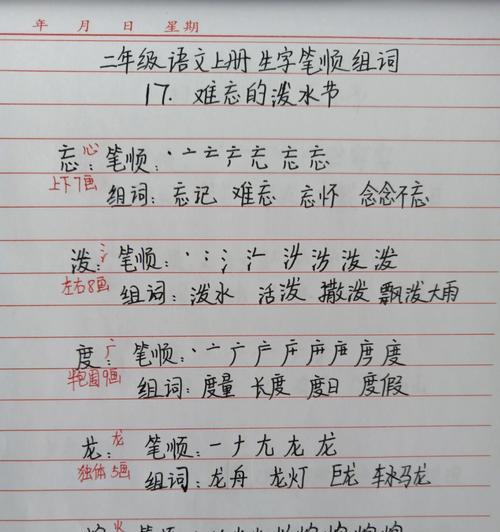 年 月 日 星期
二年级语文上册生字笔顺组词
17. 难忘的泼水节
心
忘:笔顺:丶亠亡产忘 忘 忘
上下7画 组词:忘记 难忘 忘怀 念念不忘
氵
泼:笔顺:丶冫氵 泼
左右8画 组词:泼水 活泼 撒泼 飘泼大雨
广
度:笔顺:丶亠广产 度
半包围9画 组词:度量 长度 度日 度假
龙
龙:笔顺:一ナ尢龙龙
独体5画 组词:龙舟 龙灯 巨龙 车水马龙
火
笔顺